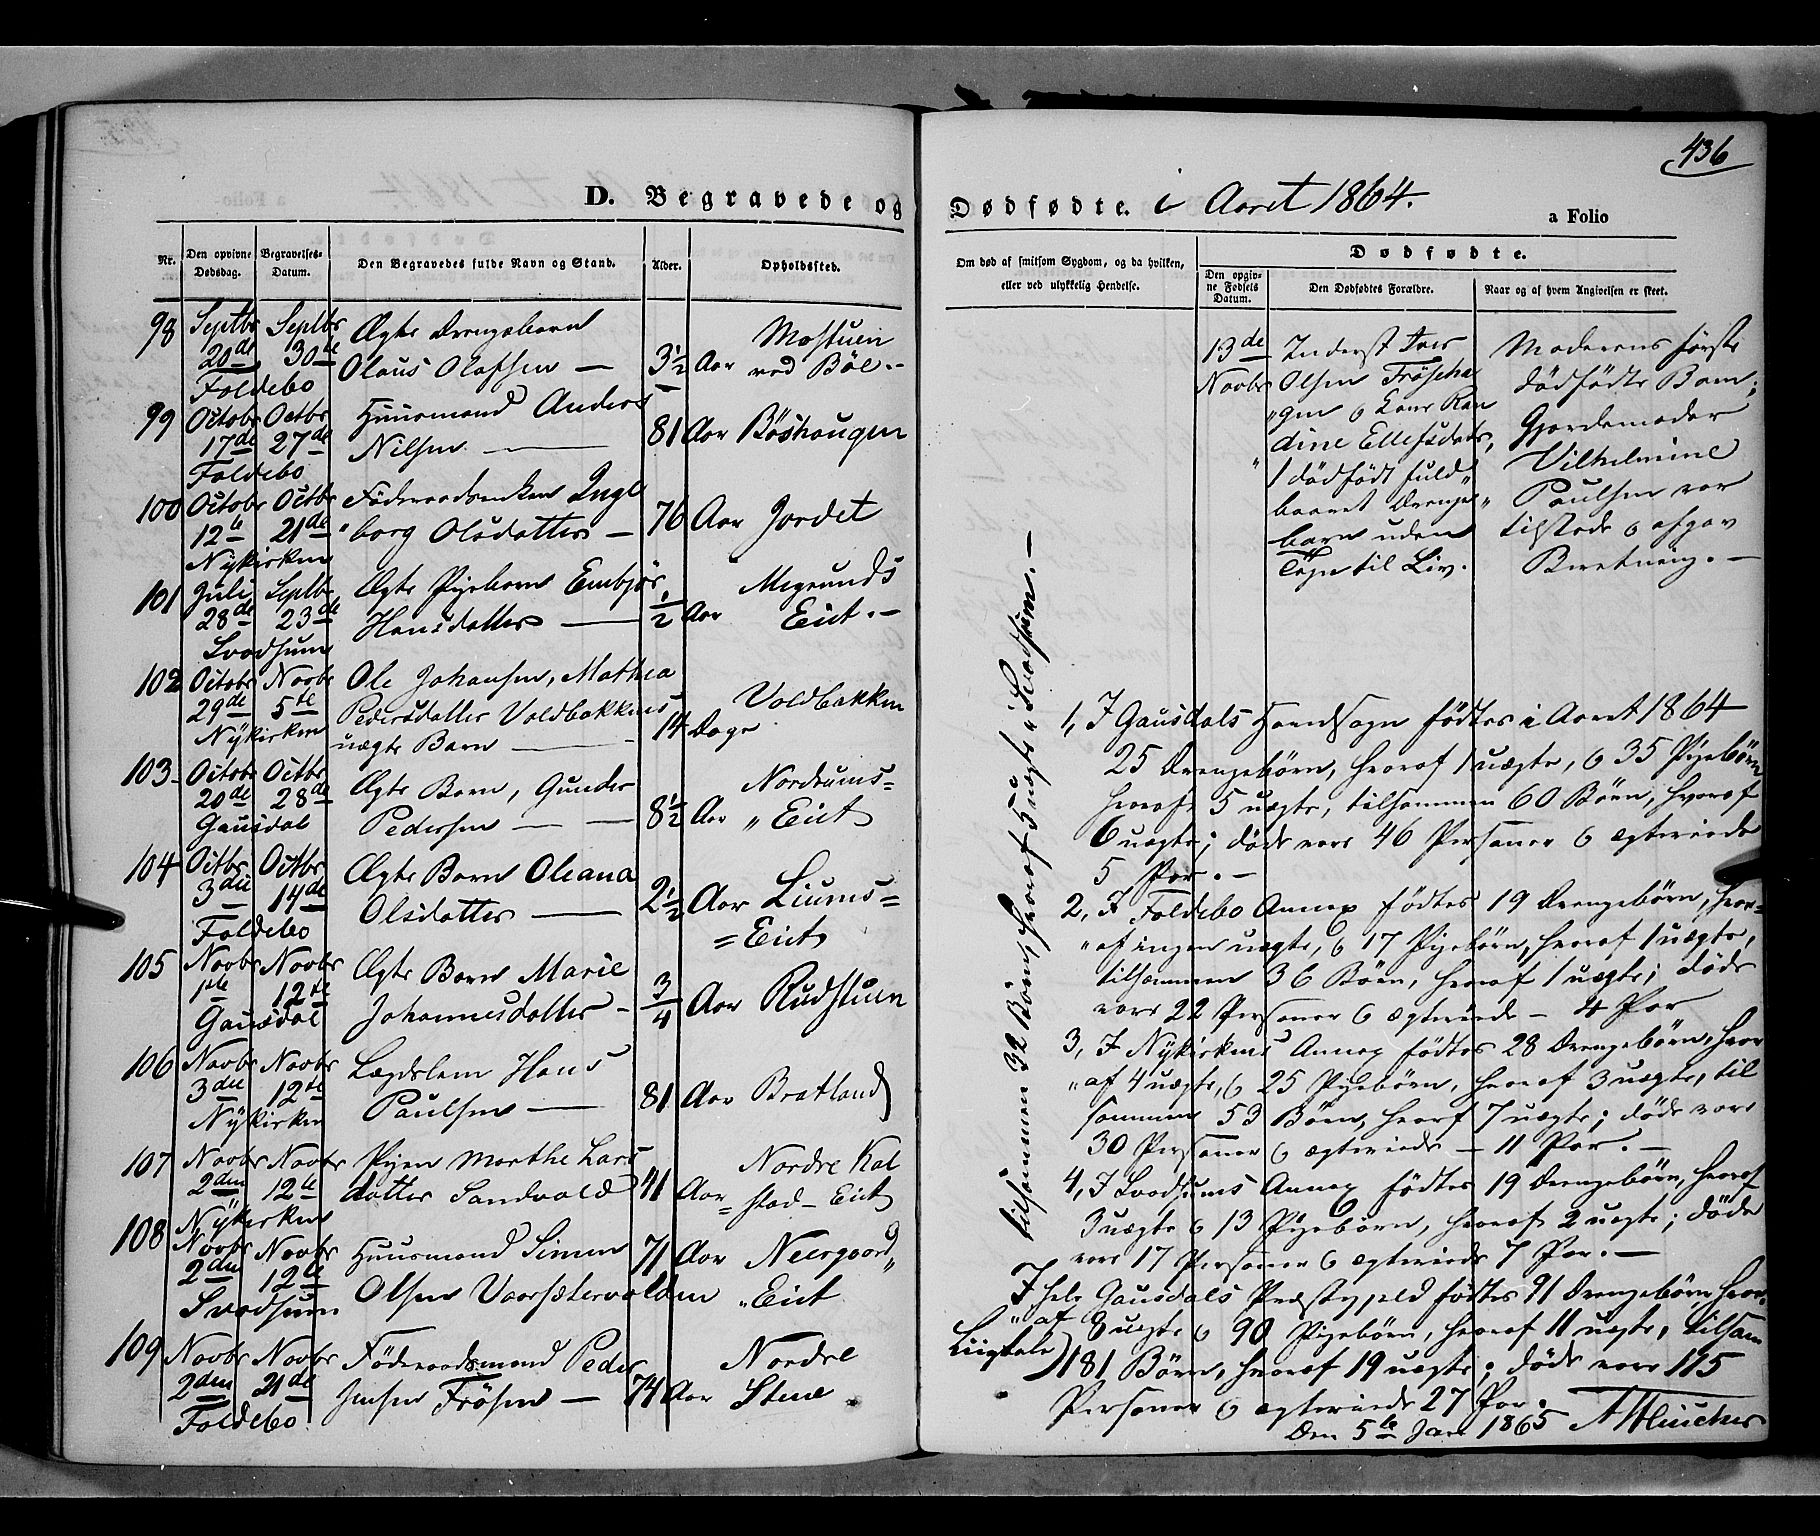 436
D. Begravede og Dødfødte. i Aaret 1864. a Folio
Nr. Den opgivne Dødsdag. Begravelses-Datum. Den Begravedes fulde Navn og Stand. Alder. Opholdssted.
98 Septbr Septbr Ægte Drengebarn Mostuen
20de 30te Olaus Olafsen — 3½ Aar ved Böe.–
Foldebo
99 Octobr Octbr Huusmand Anders
17de 27de Nilsen — 81 Aar Böshaugen
Foldebo
100 Octobr Octbr Föderaadsenken Inge
12te 21de borg Olsdatter — 76 Aar Jordet
Nykirken
101 Juli Septbr Ægte Pigebarn Embjör Megrunds
28de 23de Hansdatter — ½ Aar Eiet.–
Svadsum
102 Octobr Novbr Ole Johansen, Mathea
29de 5te Pedersdatter Voldbakkens 14 Voldbakken
Nykirken uægte Barn — Dage
103 Octobr Octbr Ægte Barn, Gunder Nordrums=
20de 28de Pedersen — 8½ Aar „Eiet
Gausdal
104 Octbr Octbr Ægte Barn Oleana
3die 14de Olsdatter — 2½ Aar Liums=
Foldebo =Eiet
105 Novbr Novbr Ægte Barn Marie
1te 12te Johannesdatter – ¾ Aar Rudstuen
Gausdal
106 Novbr Novbr Lægdslem Hans
3die 12te Paulsen — 81 Aar Bratland
Nykirken
107 Novbr Novbr Pigen Marthe Lars Nordre Kal
2den 12te datter Sandvold 41 Aar =stad–Eiet
Nykirken
108 Novbr Novbr Huusmand Simen 71 Aar Neergaard„
2den 12te Olsen Vaarsætervolden „Eiet
Svadsum
109 Novbr Novbr Föderaadsmand Peder Nordre
2den 21de Jensen Frösen — 74 Aar Steine.
Foldebo
Om død af smitsom Sygdom, og da hvilken, eller ved ulykkelig Hendelse.
Dødfødte.
Den opgivne Fødsels Datum. Den Dødfødtes Forældre. Naar og af hvem Angivelsen er skeet.
13de Inderst Iver Moderens förste
Novbr Olsen Fröseha dödfödte Barn;
„gen & Kone Ran Gjordemoder
dine Ellefsdatr, Vilhelmine
1 dödfödt fuld„ Paulsen var
baaret Drenge„ tilstede & afgav
barn uden Beretning.–
Tegn til Liv.
1, I Gausdals Hovedsogn födtes i Aaret 1864
25 Drengebörn, hvoraf 1 uægte, & 35 Pigebörn
hvoraf 5 uægte, tilsammen 60 Börn, hvoraf
6 uægte; döde vare 46 Personer & ægteviede
5 Par.–
2, I Foldebo Annex födtes 19 Drengebörn, hvor=
„af ingen uægte, & 17 Pigebörn, hvoraf 1 uægte,
tilsammen 36 Börn, hvoraf 1 uægte; döde
vare 22 Personer & ægteviede – 4 Par
3, I Nykirkens Annex födtes 28 Drengebörn, hvor
„af 4 uægte, & 25 Pigebörn, hvoraf 3 uægte, til
sammen 53 Börn, hvoraf 7 uægte; döde vare
30 Personer & ægteviede – 11 Par.–
4, I Svadsums Annex födtes 19 Drengebörn, hvoraf
3 uægte & 13 Pigebörn, hvoraf 2 uægte; döde
vare 17 Personer & ægteviede 7 Par.–
tilsammen 32 Börn, hvoraf 5 uægte i Svadsum.–
I hele Gausdals Præstegjeld födtes 91 Drengebörn, hvor„
„af 8 uægte & 90 Pigebörn, hvoraf 11 uægte, tilsam
181 Börn, hvoraf 19 uægte; döde vare 115
Personer & ægteviede 27 Par.
Den 5te Jan 1865